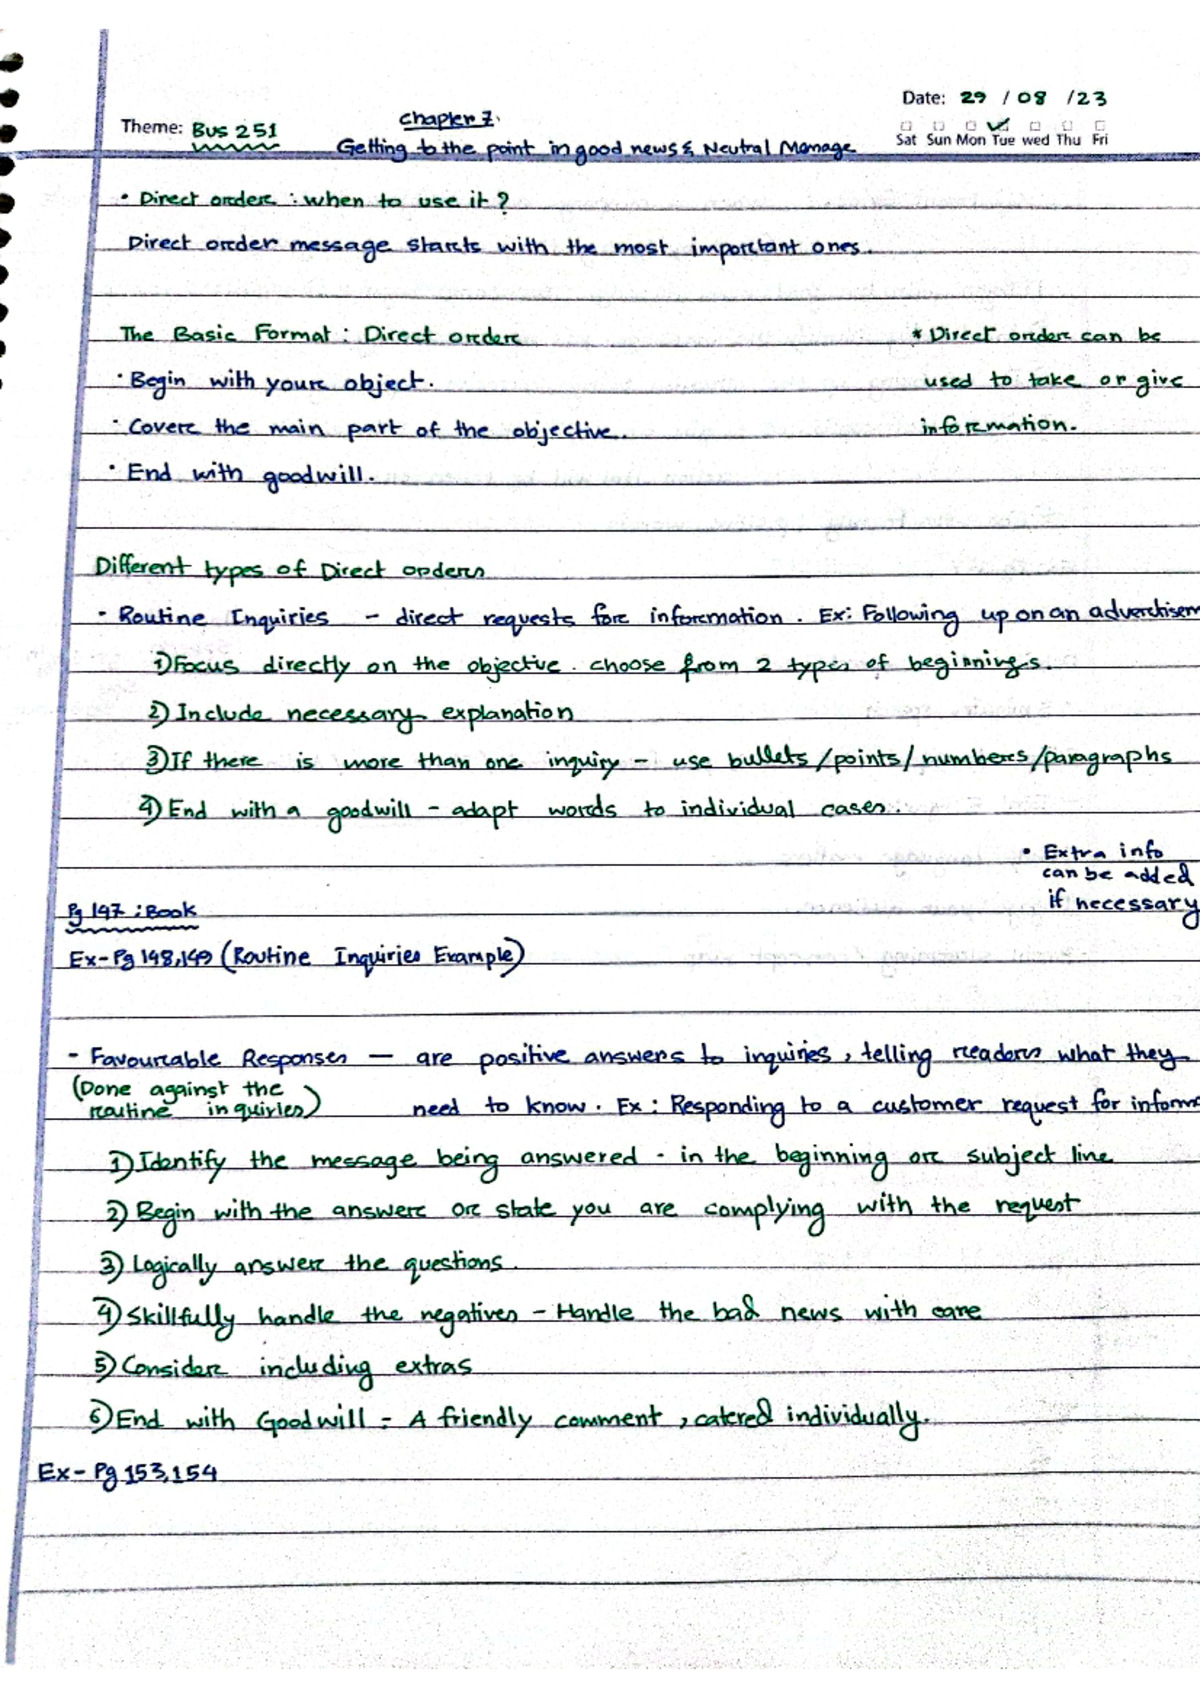 Date: 29 / 08 / 23
Theme: Bus 251
Chapter 7.
Sat Sun Mon Tue wed Thu Fri
Getting to the point in good news & Neutral Menage
• Direct order : when to use it ?
Direct order message starts with the most important ones.
The Basic Format : Direct order
* Direct order can be
• Begin with your object.
used to take or give
• Cover the main part of the objective.
information.
• End with goodwill.
Different types of Direct orders
- Routine Inquiries - direct requests for information . Ex: Following up on an advertisem
1) Focus directly on the objective . choose from 2 types of beginnings.
2) Include necessary explanation
3) If there is more than one inquiry - use bullets/points/numbers/paragraphs
4) End with a goodwill - adapt words to individual cases.
• Extra info
can be added
if necessary
Pg 147 : Book
Ex- Pg 148,149 (Routine Inquiries Example)
- Favourable Responses — are positive answers to inquiries, telling readers what they
(Done against the
routine inquiries)
need to know. Ex : Responding to a customer request for inform
1) Identify the message being answered - in the beginning or subject line
2) Begin with the answer or state you are complying with the request
3) Logically answer the questions.
4) Skillfully handle the negatives - Handle the bad news with care
5) Consider including extras
6) End with Goodwill - A friendly comment, catered individually.
Ex- Pg 153,154